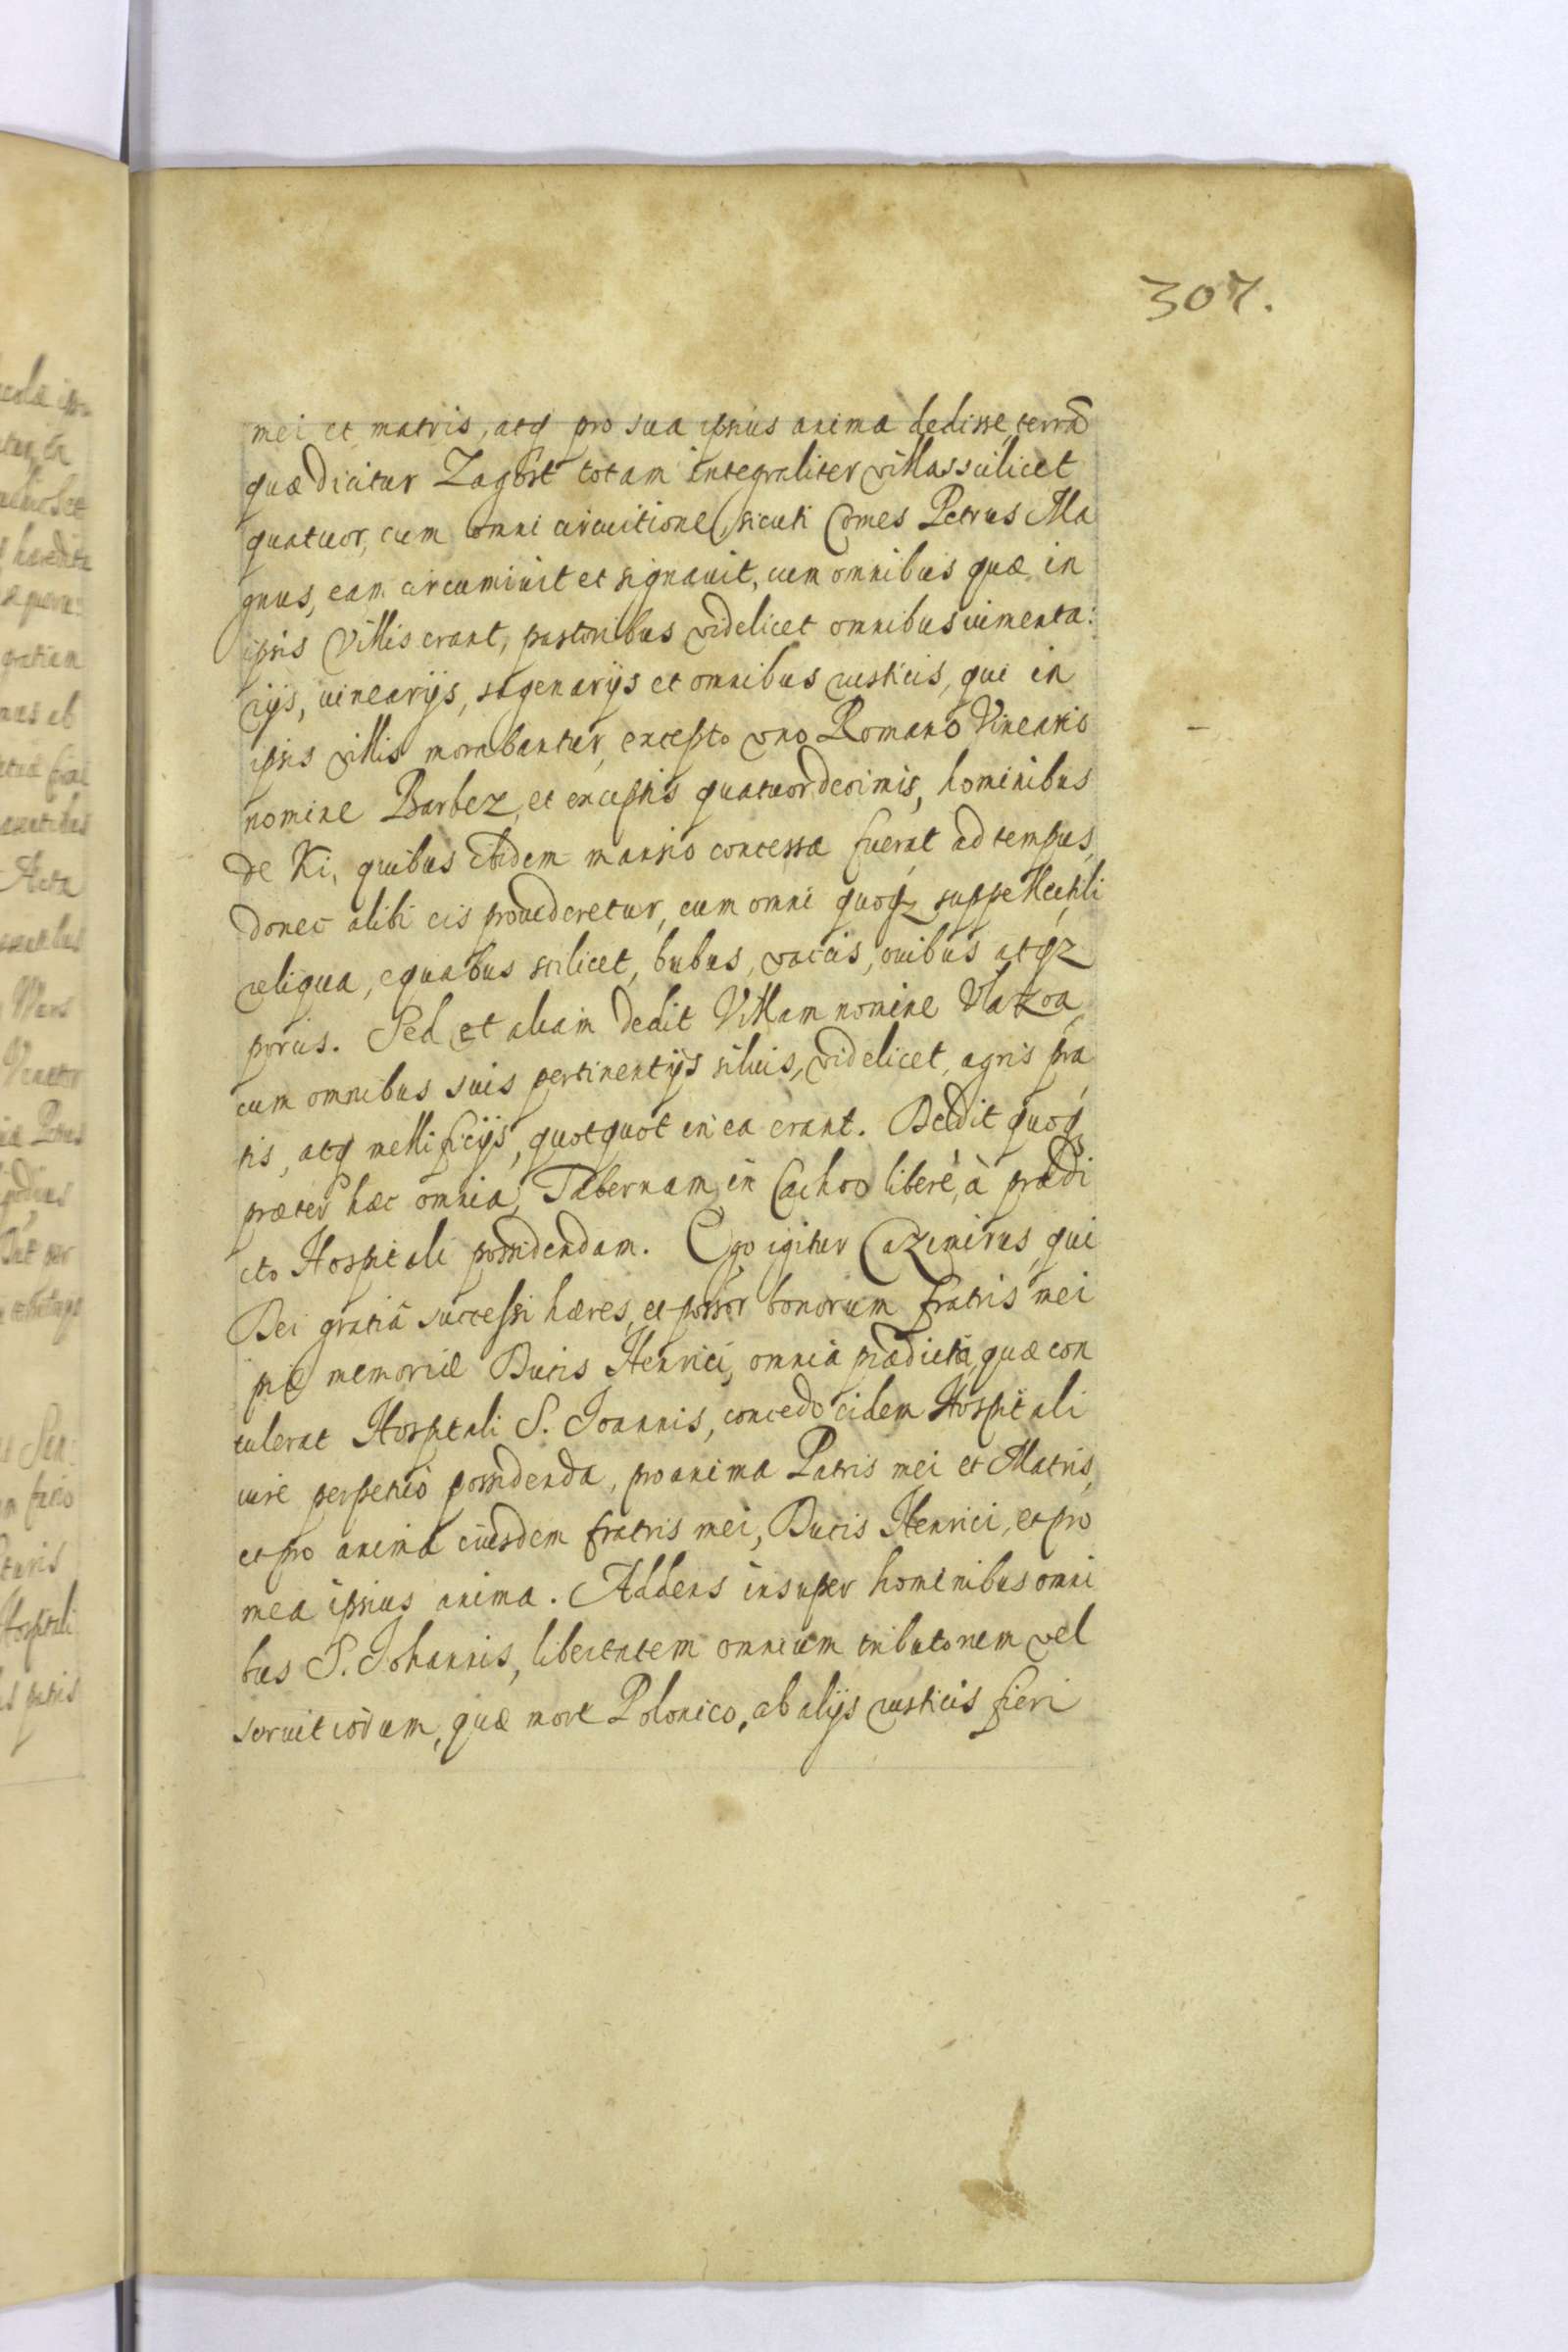 307.
mei et matris, atq pro sua ipsius anima dedisse, terrã
quæ dicitur Zagost totam integraliter villas scilicet
quatuor, cum omni circuitione, sicuti Comes Petrus Ma
gnus, eam circumiuit et signauit, cum omnibus quæ in
ipsis Villis erant, pastoribus videlicet omnibus iumenta:
rijs, uinearijs, sagenarijs et omnibus rusticis, qui in
ipsis villis morabantur, excepto vno Romano Vineario
nomine Barbez, et exceptis quatuordecimis, hominibus
de Ki, quibus ibidem mansio concessa fuerat ad tempus,
donec alibi eis prouideretur, cum omni quoqz suppellectili
reliqua, equabus scilicet, bubus, vaccis, ouibus atqz
porcis. Sed et aliam dedit Villam nomine Vlazoa,
cum omnibus suis pertinentijs siluis, videlicet, agris pra
tis, atq mellificijs, quotquot in ea erant. Dedit quoq
præter hæc omnia, Tabernam in Cachou liberè, à prædi
cto Hospitali possidendam. Ego igitur Cazimirus, qui
Dei gratiâ successi hæres, et possor bonorum fratris mei
piæ memoriæ Ducis Henrici, omnia prædicta, quæ con
tulerat Hospitali S. Joannis, concedo eidem Hospitali
iure perpetuò possidenda, pro anima Patris mei et Matris,
et pro anima eiusdem fratris mei, Ducis Henrici, et pro
mea ipsius anima. Addens insuper hominibus omni
bus S. Johannis, libertatem omnium tributorum vel
seruitiorum, quæ more Polonico, ab alijs rusticis fieri